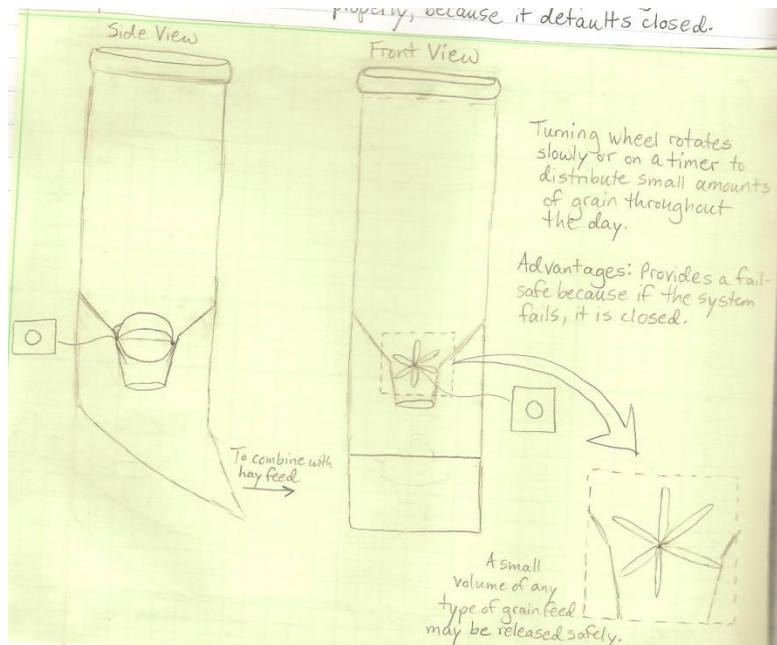 properly, because it defaults closed.
Side View
Front View
Turning wheel rotates
slowly or on a timer to
distribute small amounts
of grain throughout
the day.
Advantages: Provides a fail-
safe because if the system
fails, it is closed.
To combine with
hay feed
A small
volume of any
type of grain feed
may be released safely.